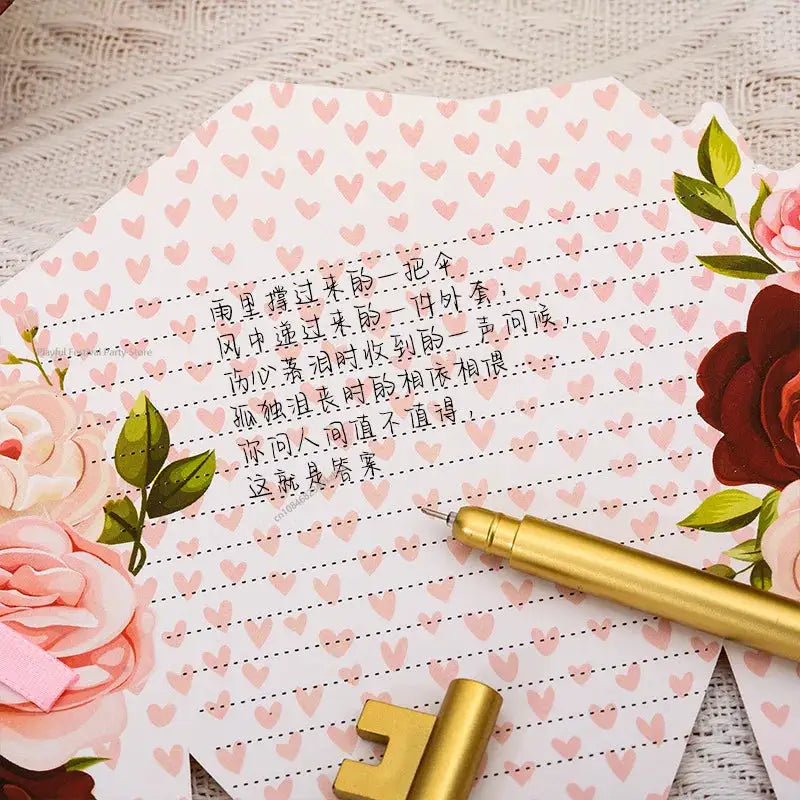 雨里撑过来的一把伞
风中递过来的一件外套，
内心落泪时收到的一声问候，
孤独沮丧时的相依相偎
你问人间值不值得，
这就是答案
Joyful Festival Party Store